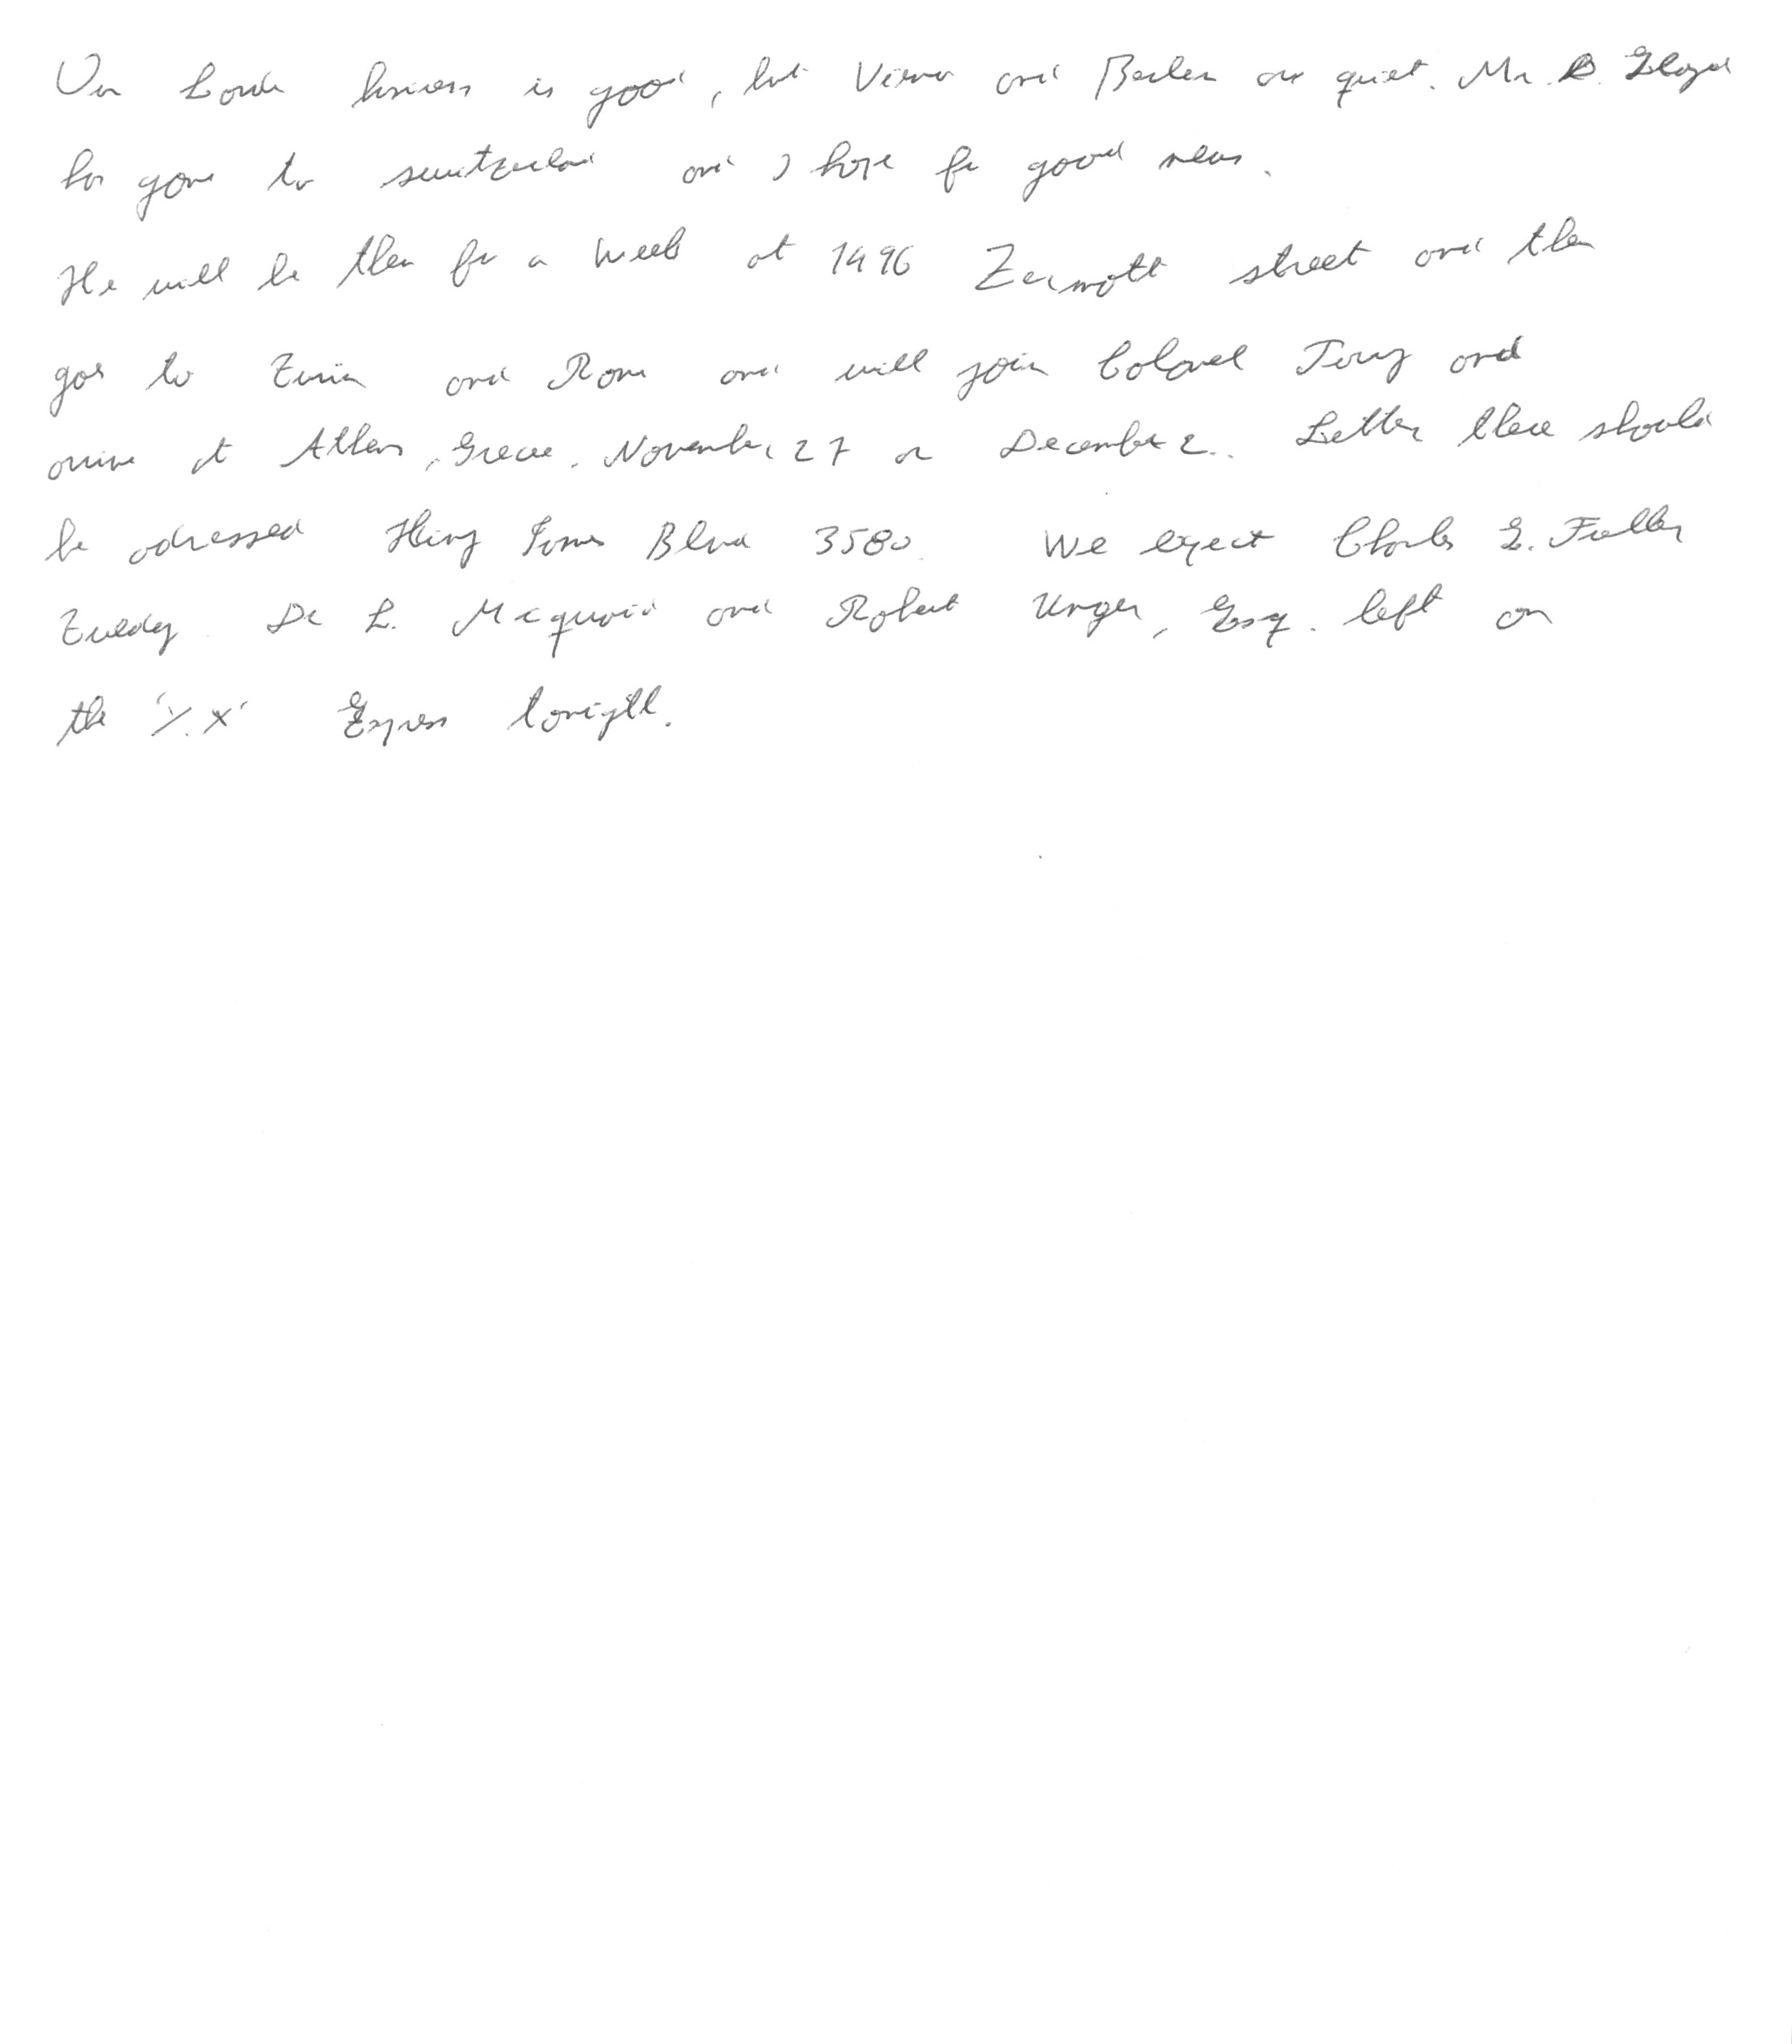 Our London business is good, but Vienna and Berlin are quiet. Mr. D. Lloyd
has gone to switzerland and I hope for good news.
He will be there for a week at 1496 Zermott street and then
goes to Turin and Rome and will join Colonel Terry and
arrive at Athens, Greece, November 27 or December 2. Letters there should
be adressed King James Blvd 3580. We expect Charles E. Fuller
Tuesday. Dr L. Mcquaid and Robert Unger, Esq. left on
the 'Y.X' Express tonight.